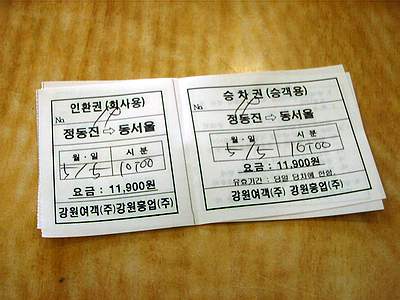 인환권 (회사용)
No
정동진 ⇨ 동서울
월·일 시 분
5/5 10:00
요금 : 11,900원
강원여객(주)강원흥업(주)
승 차 권 (승객용)
No
정동진 ⇨ 동서울
월·일 시 분
5/5 10:00
요금 : 11,900원
유효기간 : 당일 당차에 한함.
강원여객(주) 강원흥업(주)